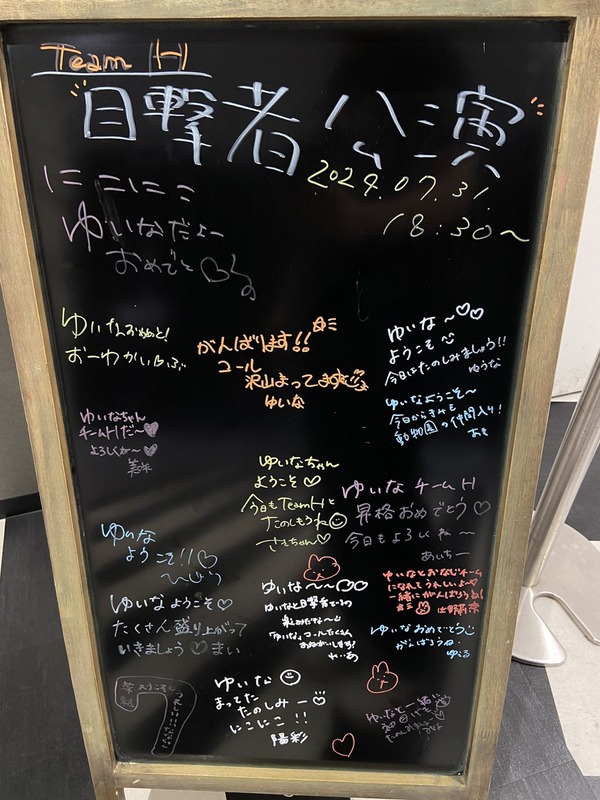 Team H
目撃者公演
2024.07.31
18:30～
にこにこ
ゆいなだよー
おめでと♡
ゆいなおめでと!
がんばります!!
コール
沢山まってます
ゆいな
ゆいな～♡♡
ようこそ
今日はたのしみましょう!!
ゆうな
ゆいなようこそ～
今日からきみも
動物園の仲間入り!
あき
ゆいなちゃん
チームHだ～♡
よろしくね～♡
美咲
ゆいなちゃん
ようこそ♡
今日もTeamHと
たのしもうね
さえちゃん♡
ゆいな チームH
昇格おめでとう♡
今日もよろしくね～
あいちー
ゆいな
ようこそ!!♡
ゆいなとおなじチーム
になれてうれしいよ～♡
一緒にがんばろうね!
ゆいな～～♡♡
ゆいなと目撃者でるの
楽しみだな～
「ゆいな」コールたくさん
おねがいします!
ゆいなようこそ♡
たくさん盛り上がって
いきましょう♡まい
ゆいなおめでとう
がんばろうね
ゆいな
まってた
たのしみー
にこにこ!!
陽彩
ゆいなと一緒